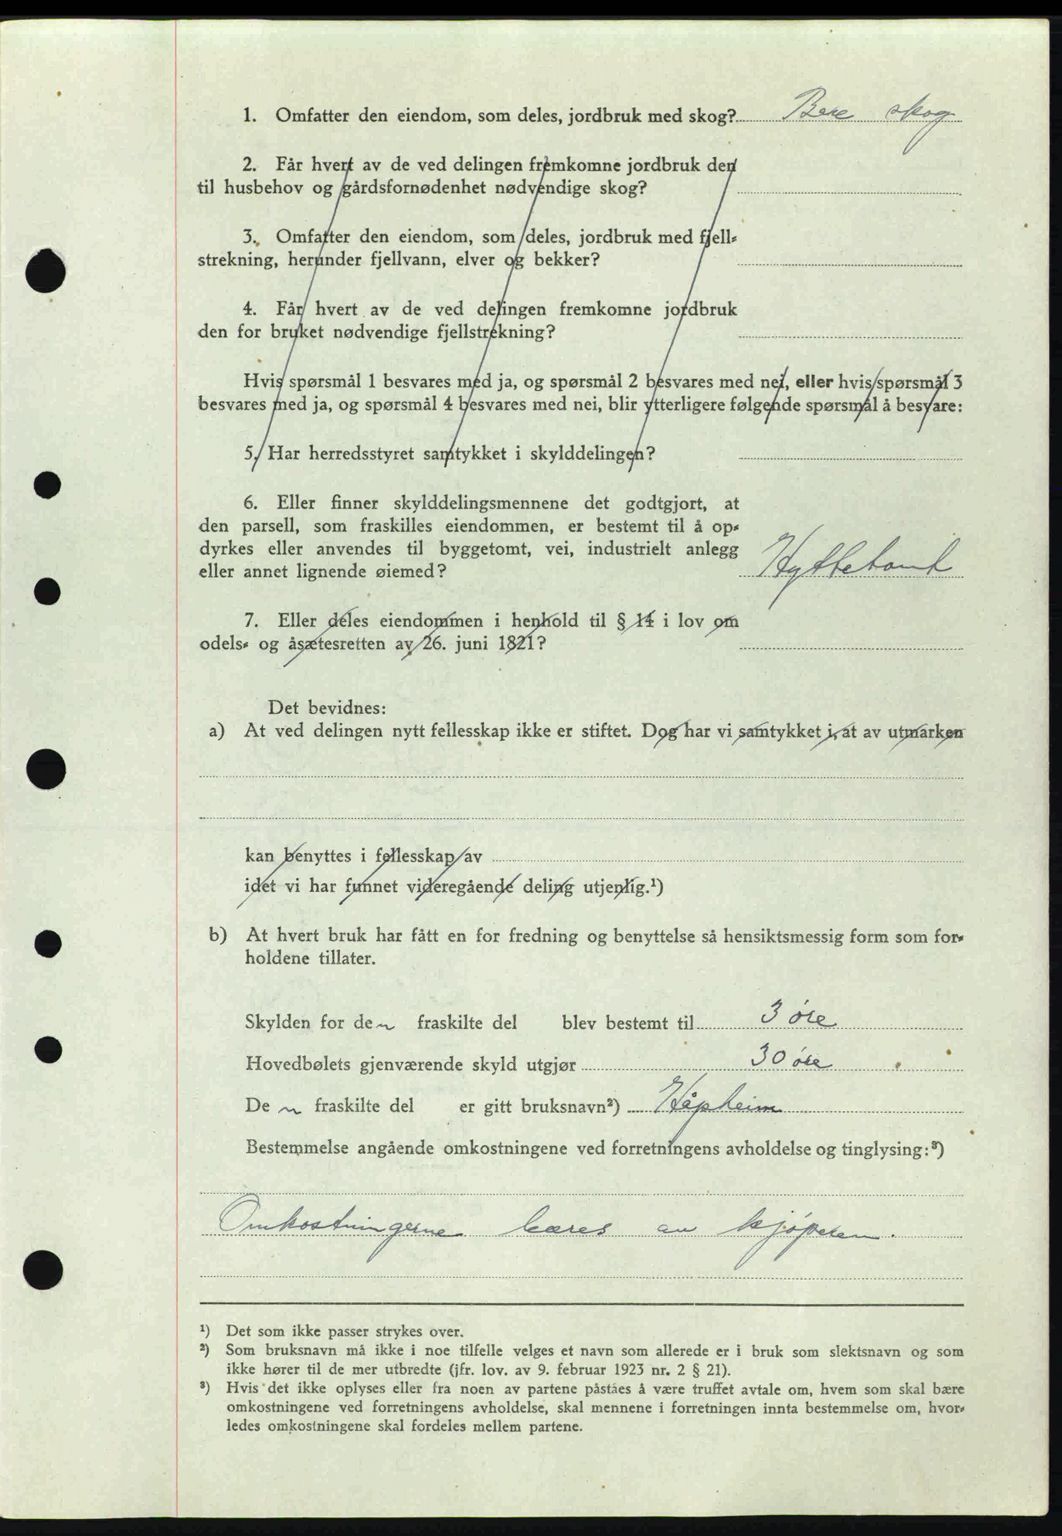 1. Omfatter den eiendom, som deles, jordbruk med skog? Bare skog
2. Får hvert av de ved delingen fremkomne jordbruk den
til husbehov og gårdsfornødenhet nødvendige skog?
3. Omfatter den eiendom, som deles, jordbruk med fjell-
strekning, herunder fjellvann, elver og bekker?
4. Får hvert av de ved delingen fremkomne jordbruk
den for bruket nødvendige fjellstrekning?
Hvis spørsmål 1 besvares med ja, og spørsmål 2 besvares med nei, eller hvis spørsmål 3
besvares med ja, og spørsmål 4 besvares med nei, blir ytterligere følgende spørsmål å besvare:
5. Har herredsstyret samtykket i skylddelingen?
6. Eller finner skylddelingsmennene det godtgjort, at
den parsell, som fraskilles eiendommen, er bestemt til å op-
dyrkes eller anvendes til byggetomt, vei, industrielt anlegg
eller annet lignende øiemed? Hyttetomt
7. Eller deles eiendommen i henhold til § 14 i lov om
odels- og åsætesretten av 26. juni 1821?
Det bevidnes:
a) At ved delingen nytt fellesskap ikke er stiftet. Dog har vi samtykket i, at av utmarken
kan benyttes i fellesskap av
idet vi har funnet videregående deling utjenlig.¹)
b) At hvert bruk har fått en for fredning og benyttelse så hensiktsmessig form som for-
holdene tillater.
Skylden for den fraskilte del blev bestemt til 3 øre
Hovedbølets gjenværende skyld utgjør 30 øre
Den fraskilte del er gitt bruksnavn²) Håpheim
Bestemmelse angående omkostningene ved forretningens avholdelse og tinglysing:³)
Omkostningerne bæres av kjøperen.
¹) Det som ikke passer strykes over.
²) Som bruksnavn må ikke i noe tilfelle velges et navn som allerede er i bruk som slektsnavn og som
ikke hører til de mer utbredte (jfr. lov. av 9. februar 1923 nr. 2 § 21).
³) Hvis det ikke oplyses eller fra noen av partene påståes å være truffet avtale om, hvem som skal bære
omkostningene ved forretningens avholdelse, skal mennene i forretningen innta bestemmelse om, hvor-
ledes omkostningene skal fordeles mellem partene.